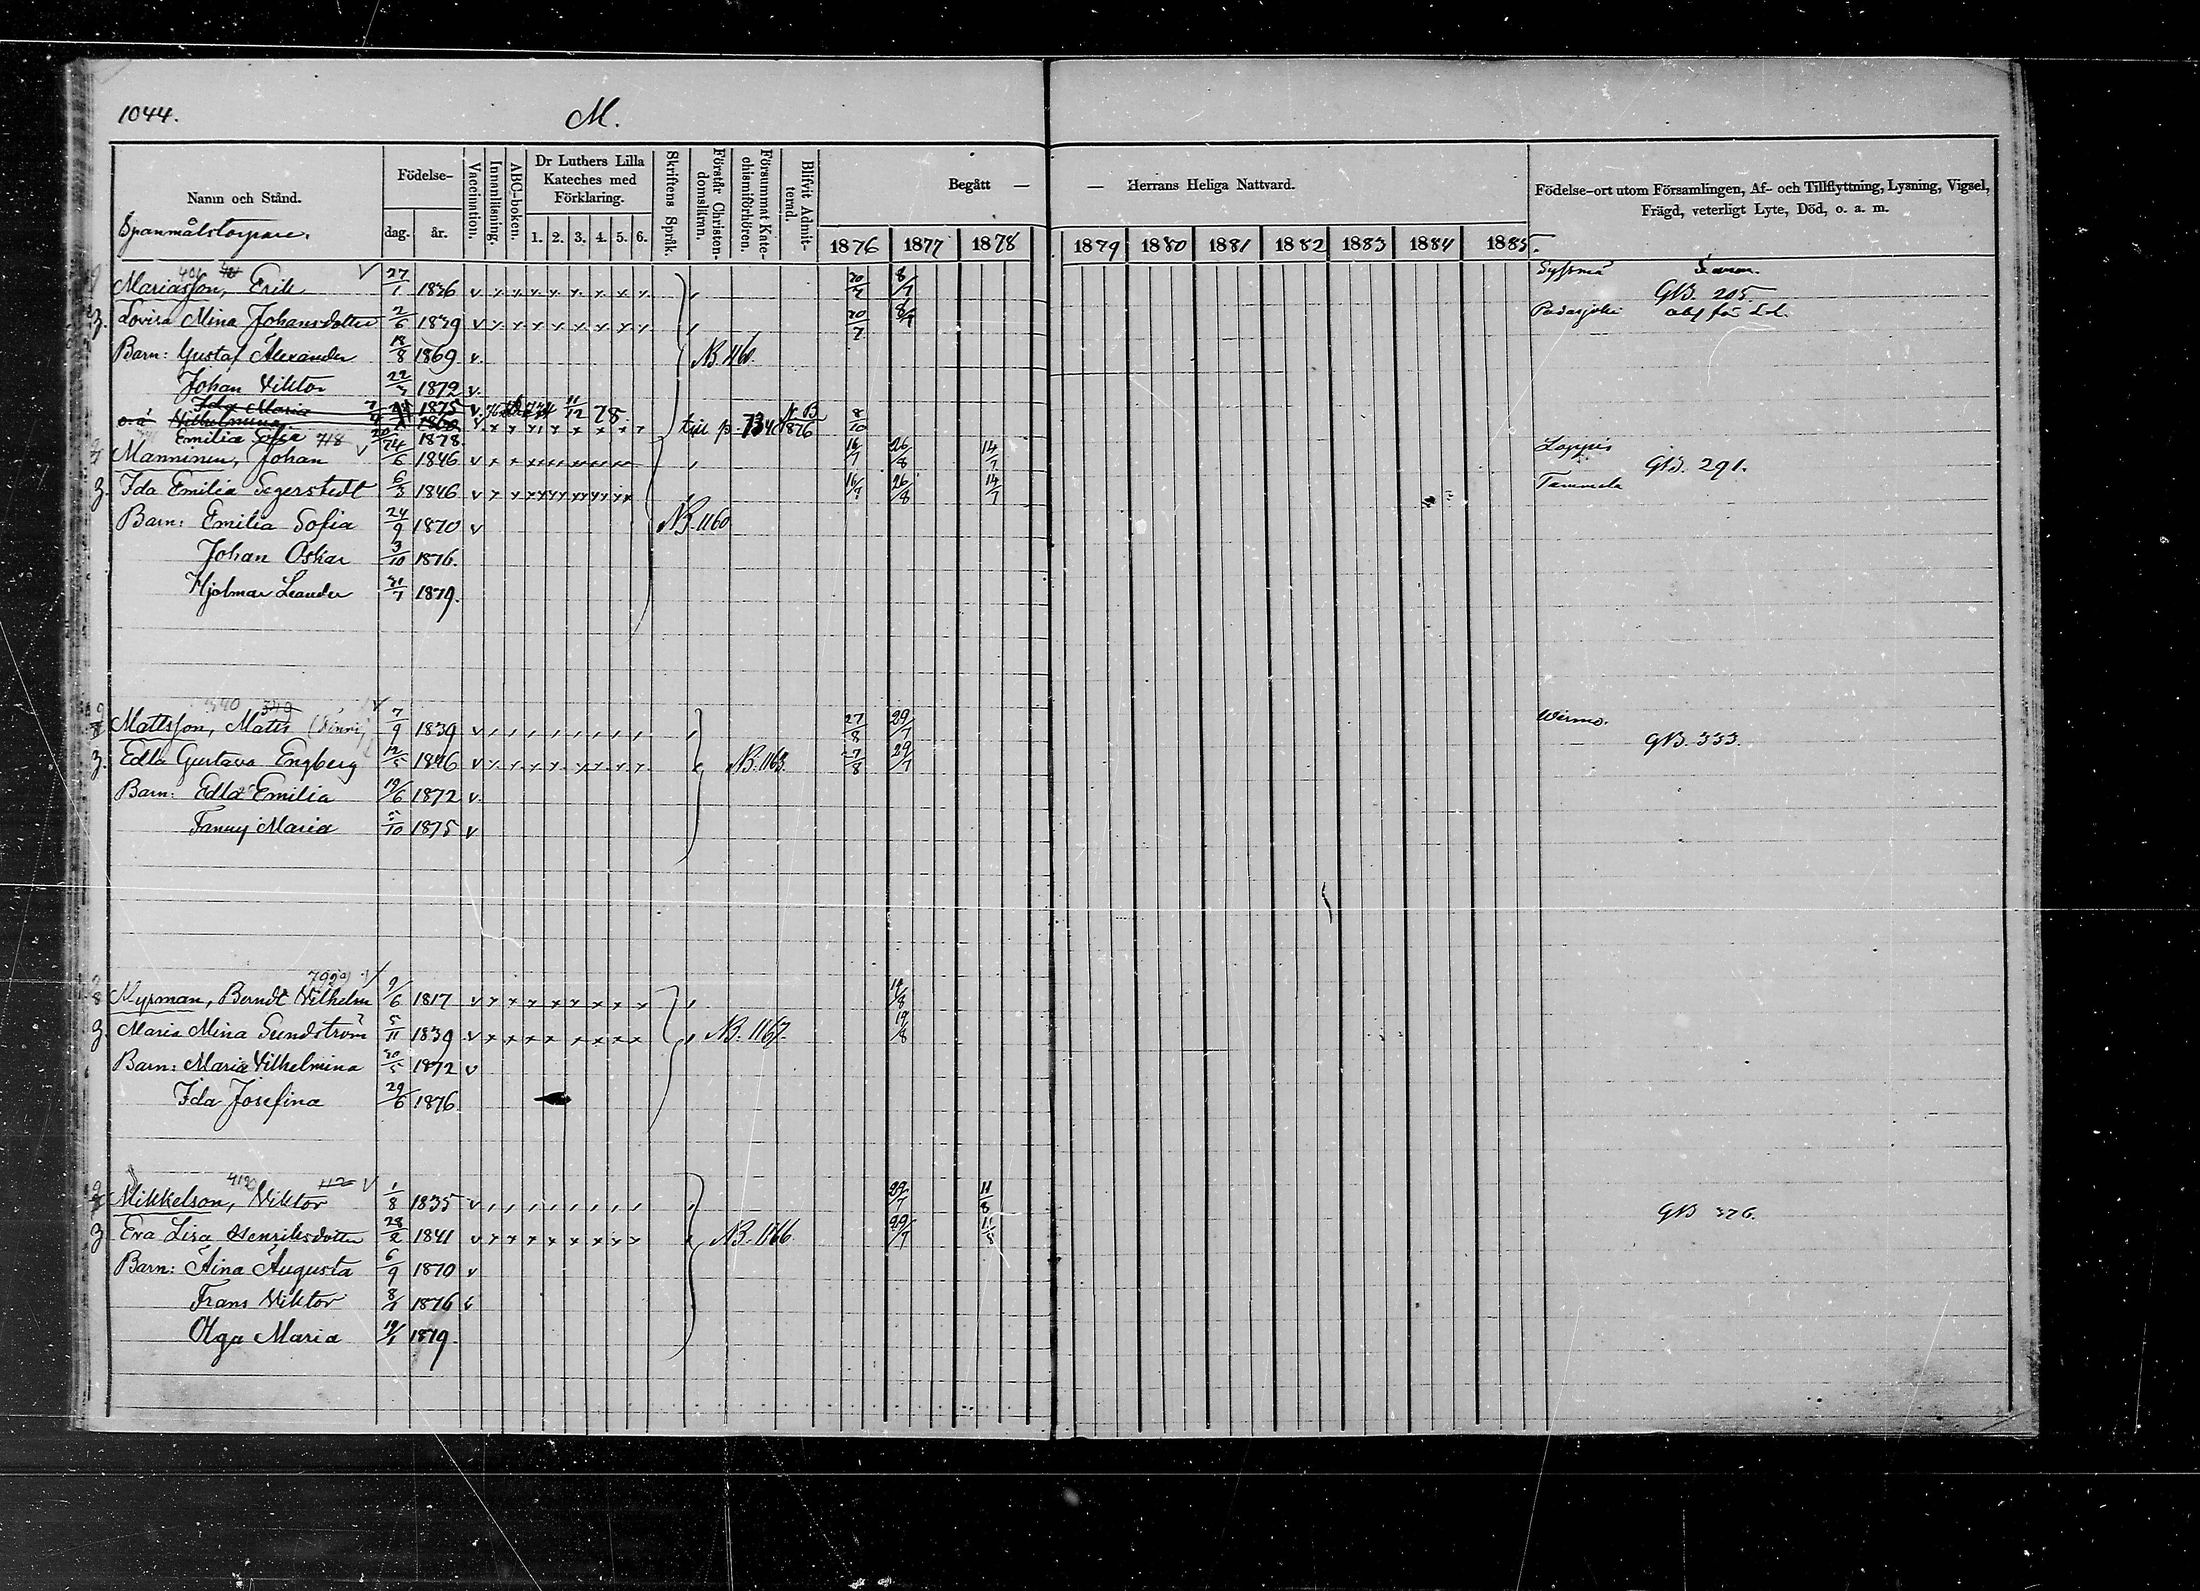 1044.
M.
Namn och Stånd.
Spanmålstorpare.
Födelse-
dag.
år.
Vaccination.
Innanläsning.
ABC-boken.
Dr Luthers Lilla
Kateches med
Förklaring.
1. 2. 3. 4. 5. 6.
Skriftens Språk.
Förstår Christen-
domsläran.
Försummat Kate-
chismiförhören.
Blifvit Admit-
terad.
Begått — — Herrans Heliga Nattvard.
1876 1877 1878 1879 1880 1881 1882 1883 1884 1885.
Födelse-ort utom Församlingen, Af- och Tillflyttning, Lysning, Vigsel,
Frägd, veterligt Lyte, Död, o. a. m.
Mariasson, Erik 27/1 1836 8/7 Syssmä
GB. 205.
3. Lovisa Mina Johansdotter 2/6 1839 Padasjoki
Barn: Gustaf Alexander 18/8 1869 v. NB. 1160.
Johan Viktor 1872 v.
Ida Maria 1875 v 11/12 78
o.ä Wilhelmina till p. NB 1876 8/10
Emilia Sofia 718 1878.
Manninen, Johan 24/6 1846 v 16/7 26/8 14/7 Loppis
GB. 291.
3. Ida Emilia Segerstedt 6/3 1846 v 16/7 26/8 14/7 Tammela
Barn: Emilia Sofia 24/9 1870 v NB. 1160
Johan Oskar 3/10 1876.
Hjalmar Leander 31/7 1879.
340 349
Mattsson, Matts 7/9 1839 v 27/8 29/7 Wirmo.
GB. 333.
3. Edla Gustava Engberg 12/5 1846 v NB. 1163. 27/8 29/7
Barn: Edla Emilia 19/6 1872 v.
Fanny Maria 5/10 1875 v
Myrman, Berndt Vilhelm 9/6 1817 v 19/8
3. Maria Mina Sundström 5/11 1839 v NB. 1167. 19/8
Barn: Maria Vilhelmina 30/5 1872 v
Ida Josefina 29/6 1876
112 v
Mikkelson, Viktor 1/8 1835 v 29/7 11/8
GB 376.
3 Eva Lisa Henriksdotter 28/2 1841 v NB. 1166. 29/7 11/8
Barn: Aina Augusta 6/9 1870 v
Frans Viktor 1876 v
Olga Maria 19/1 1879.